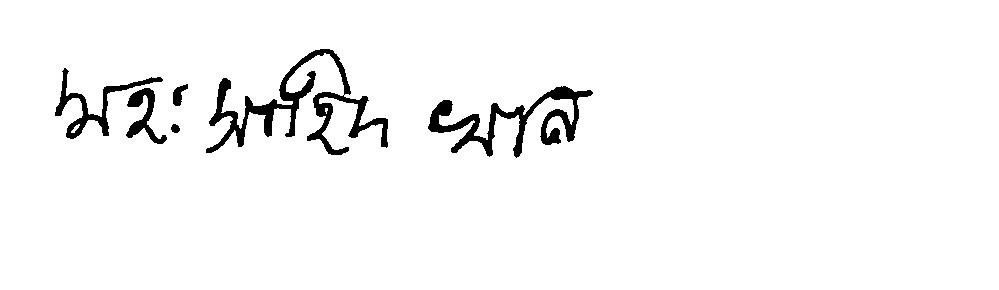 মহঃ সাহিদ খান